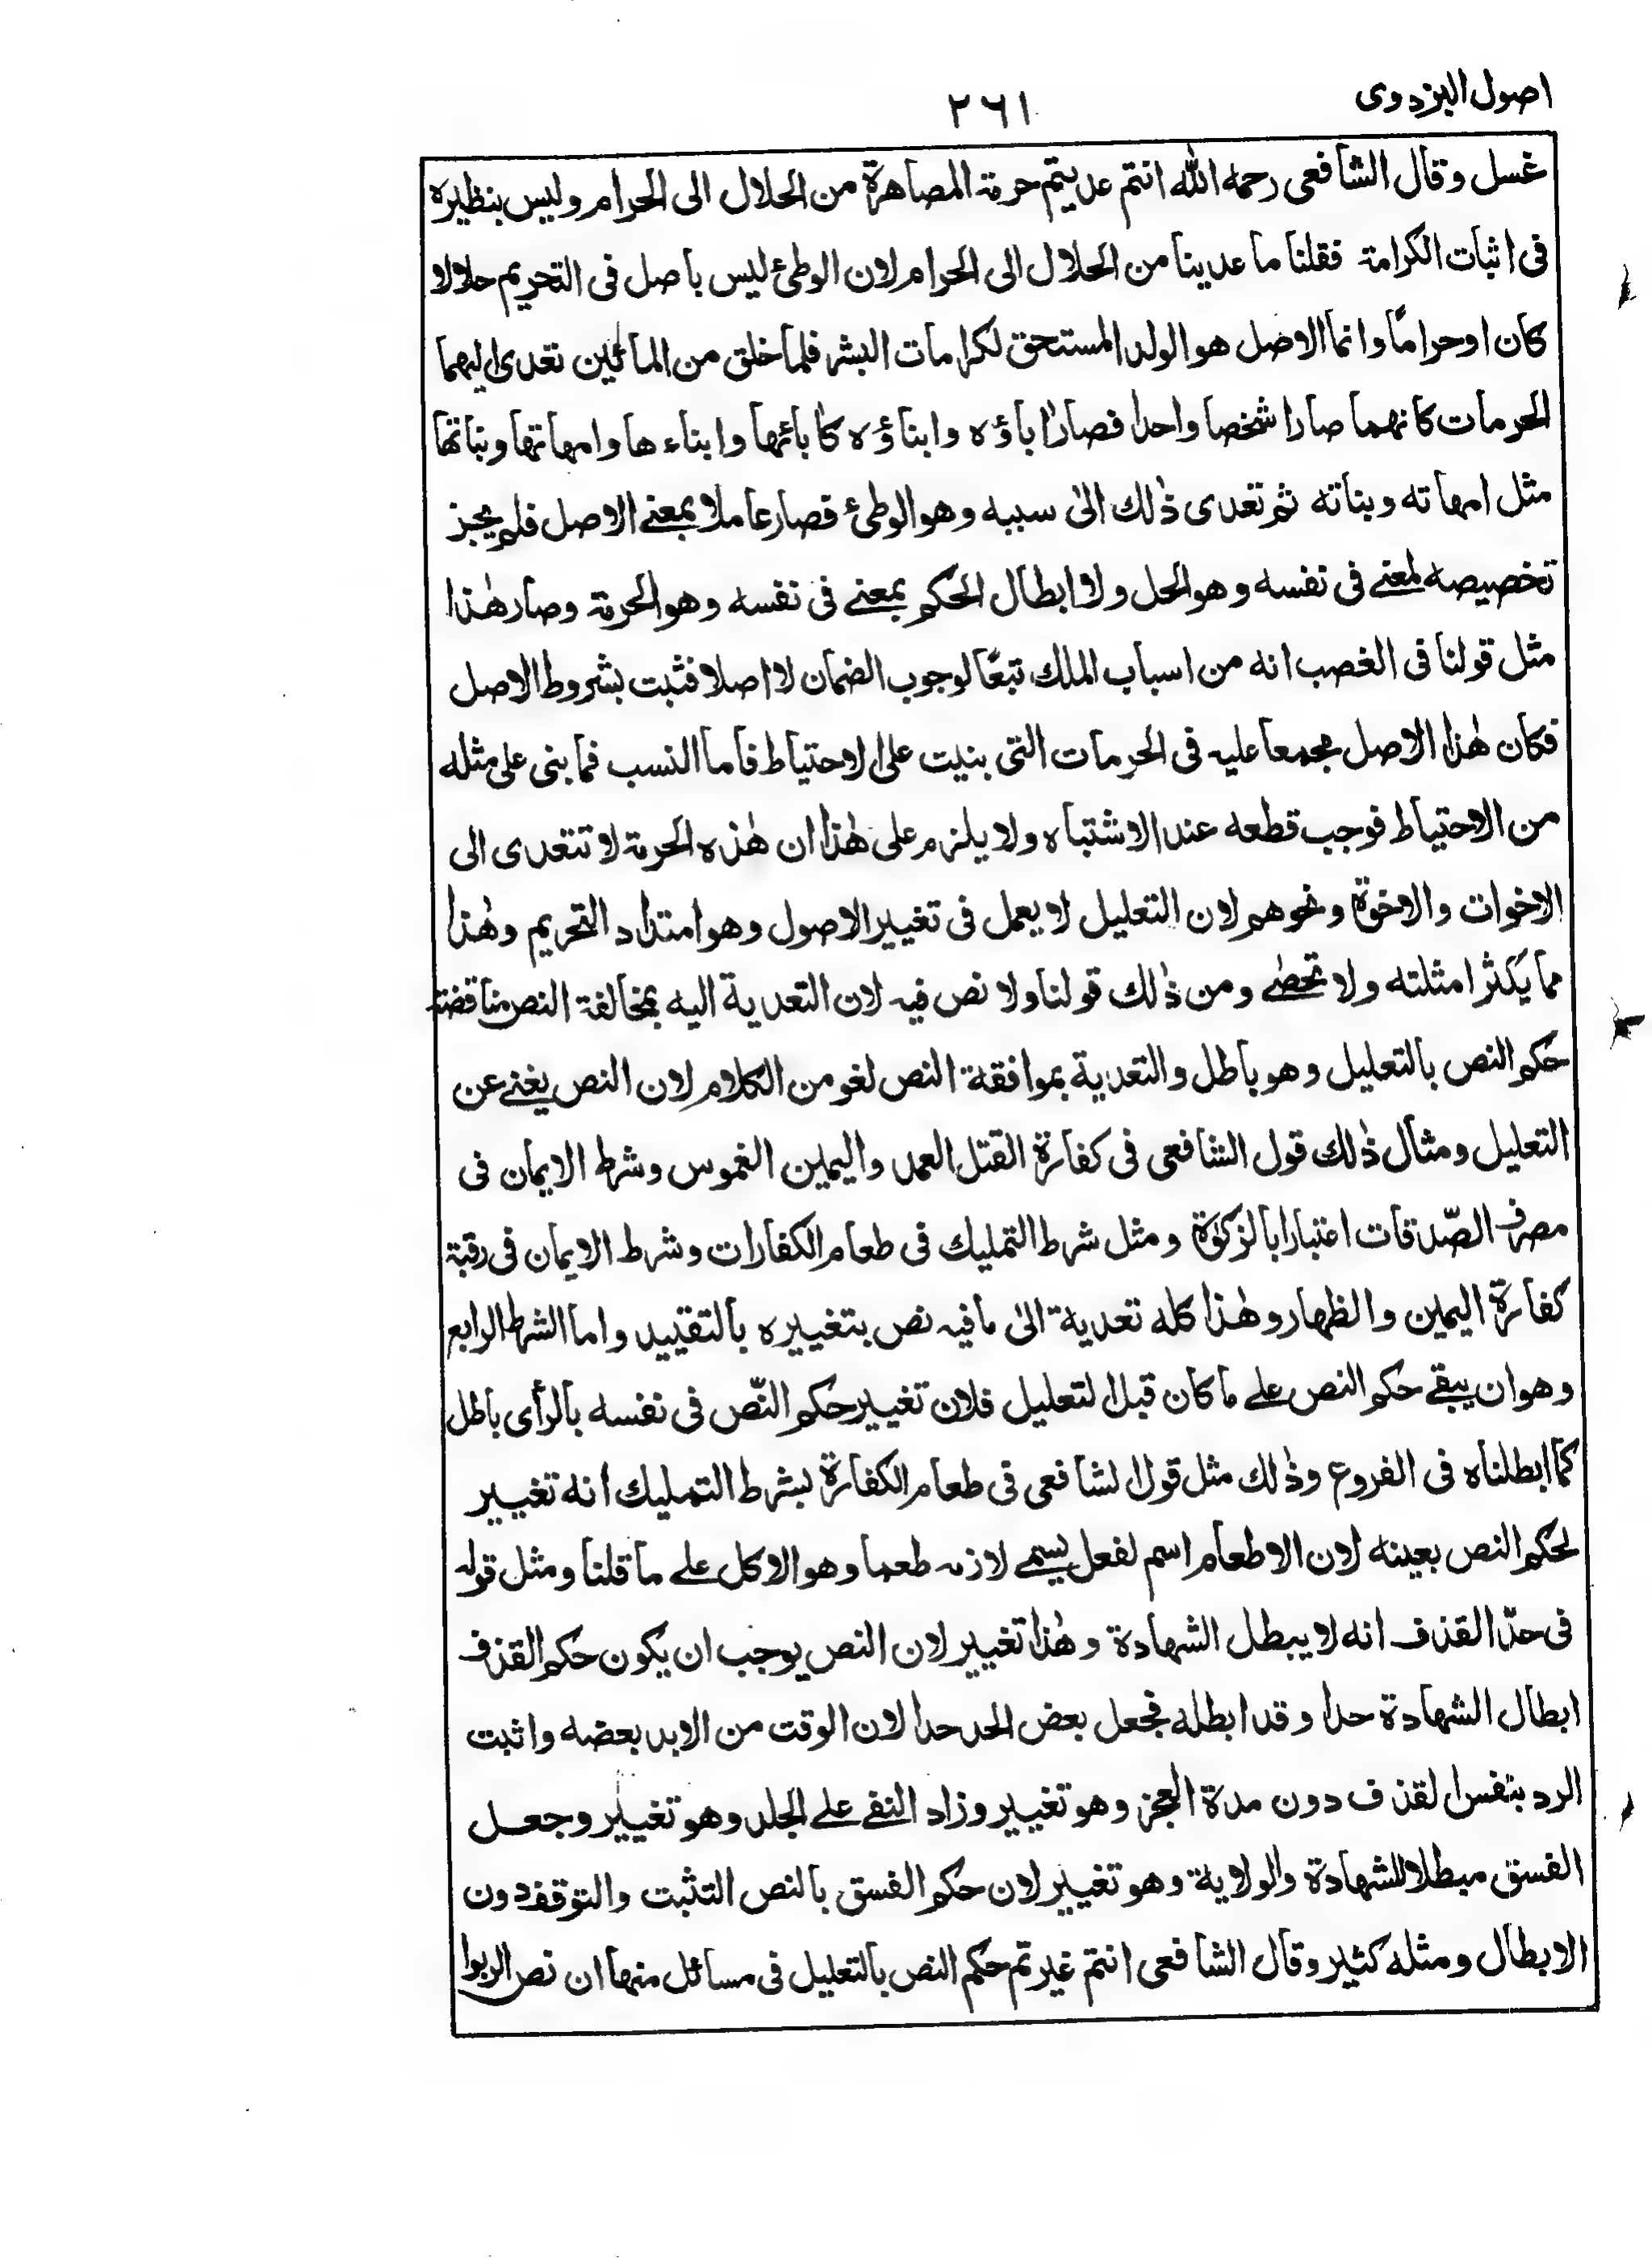 اصول البزدوى
٢٦١
غسل وقال الشافعى رحمه الله انتم عديتم حرمة المصاهرة من الحلال الى الحرام وليس بنظيره
فى اثبات الكرامة فقلنا ما عدينا من الحلال الى الحرام لان الوطئ ليس باصل فى التحريم حلالا
كان اوحراماً وانما الاصل هو الولد المستحق لكرامات البشر فلما خلق من المائين تعدى اليهما
الحرمات كانهما صارا شخصا واحدا فصار اٰباؤه وابناؤه كاٰبائها وابناءها وامهاتها وبناتها
مثل امهاته وبناته ثم تعدى ذٰلك الىٰ سببه وهو الوطئ فصار عاملا بمعنے الاصل فلم يجز
تخصيصه لمعنے فى نفسه وهو الحل ولا ابطال الحكم بمعنے فى نفسه وهو الحرمة وصار هٰذا
مثل قولنا فى الغصب انه من اسباب الملك تبعًا لوجوب الضمان لا اصلا فثبت بشروط الاصل
فكان هٰذا الاصل مجمعا عليه فى الحرمات التى بنيت على الاحتياط فاما النسب فما بنى على مثله
من الاحتياط فوجب قطعه عند الاشتباه ولا يلزم على هٰذا ان هٰذه الحرمة لا تتعدى الى
الاخوات والاخوة ونحوهم لان التعليل لا يعمل فى تغيير الاصول وهو امتداد التحريم وهٰذا
مما يكثر امثلته ولا تحصٰے ومن ذٰلك قولنا ولا نص فيه لان التعدية اليه بمخالفة النص مناقضة
حكم النص بالتعليل وهو باطل والتعدية بموافقة النص لغو من الكلام لان النص يغنے عن
التعليل ومثال ذٰلك قول الشافعى فى كفارة القتل العمد واليمين الغموس وشرط الايمان فى
مصرف الصّدقات اعتبارا بالزكوٰة ومثل شرط التمليك فى طعام الكفارات وشرط الايمان فى رقبة
كفارة اليمين والظهار وهٰذا كله تعدية الىٰ ما فيه نص بتغييره بالتقييد واما الشرط الرابع
وهو ان يبقے حكم النص علے ما كان قبل التعليل فلان تغيير حكم النّص فى نفسه بالرأى باطل
كما ابطلناه فى الفروع وذٰلك مثل قول الشافعى فى طعام الكفارة بشرط التمليك انه تغيير
لحكم النص بعينه لان الاطعام اسم لفعل يسمے لازمه طعما وهو الاكل علے ما قلنا ومثل قوله
فى حدّ القذف انه لا يبطل الشهادة وهٰذا تغيير لان النص يوجب ان يكون حكم القذف
ابطال الشهادة حدا وقد ابطله فجعل بعض الحد حدا لان الوقت من الابد بعضه واثبت
الرد بنفس القذف دون مدة العجز وهو تغيير وزاد النفے علے الجلد وهو تغيير وجعل
الفسق مبطلا للشهادة والولاية وهو تغيير لان حكم الفسق بالنص التثبت والتوقف دون
الابطال ومثله كثير وقال الشافعى انتم غيرتم حكم النص بالتعليل فى مسائل منها ان نص الربوا